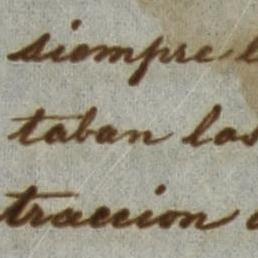 siempre
taban las
traccion